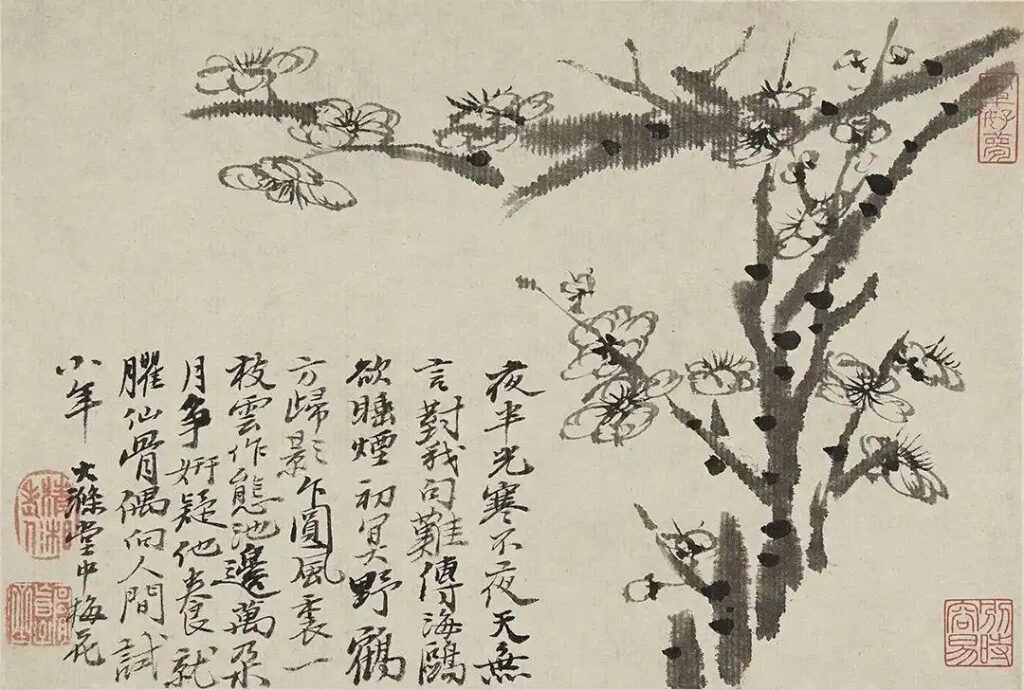 夜半光寒不夜天無
言對我句難傳海鷗
欲睡煙初冥野鶴
方歸影乍圓風裏一
枝雲作態池邊萬朵
月争妍疑他養就
臞仙骨偶向人間試
小年
大滌堂中梅花
清湘老人
好夢
別時容易